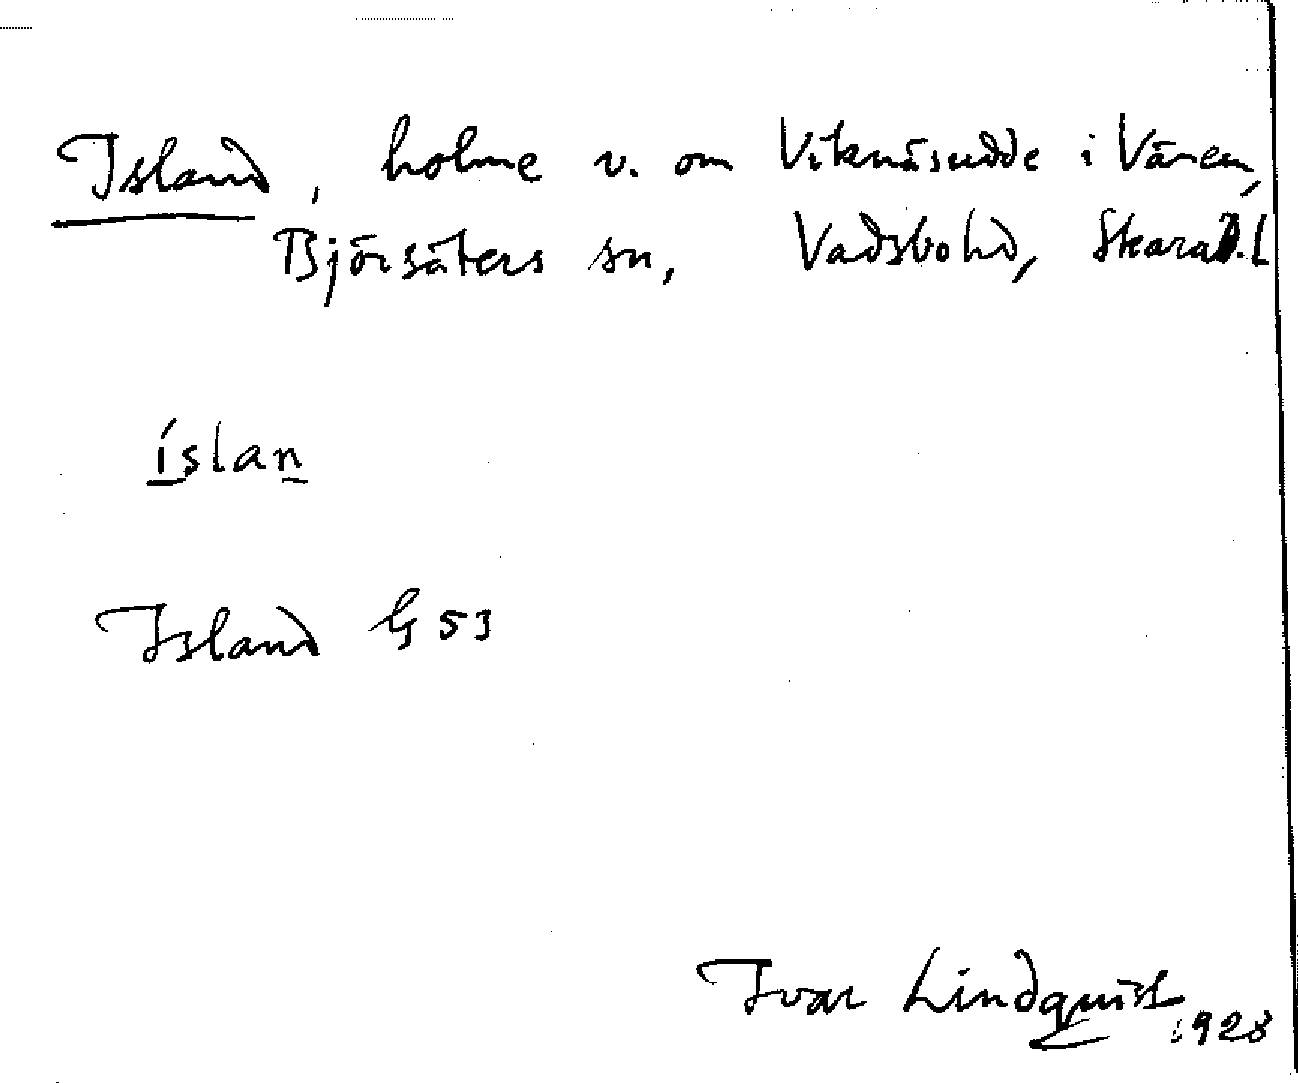 Island, holme v. om Viknäsudde i Vänern,
Björsäters sn, Vadsbo hd, Skarab. l
íslan
Island G 53
Ivar Lindquist
1928